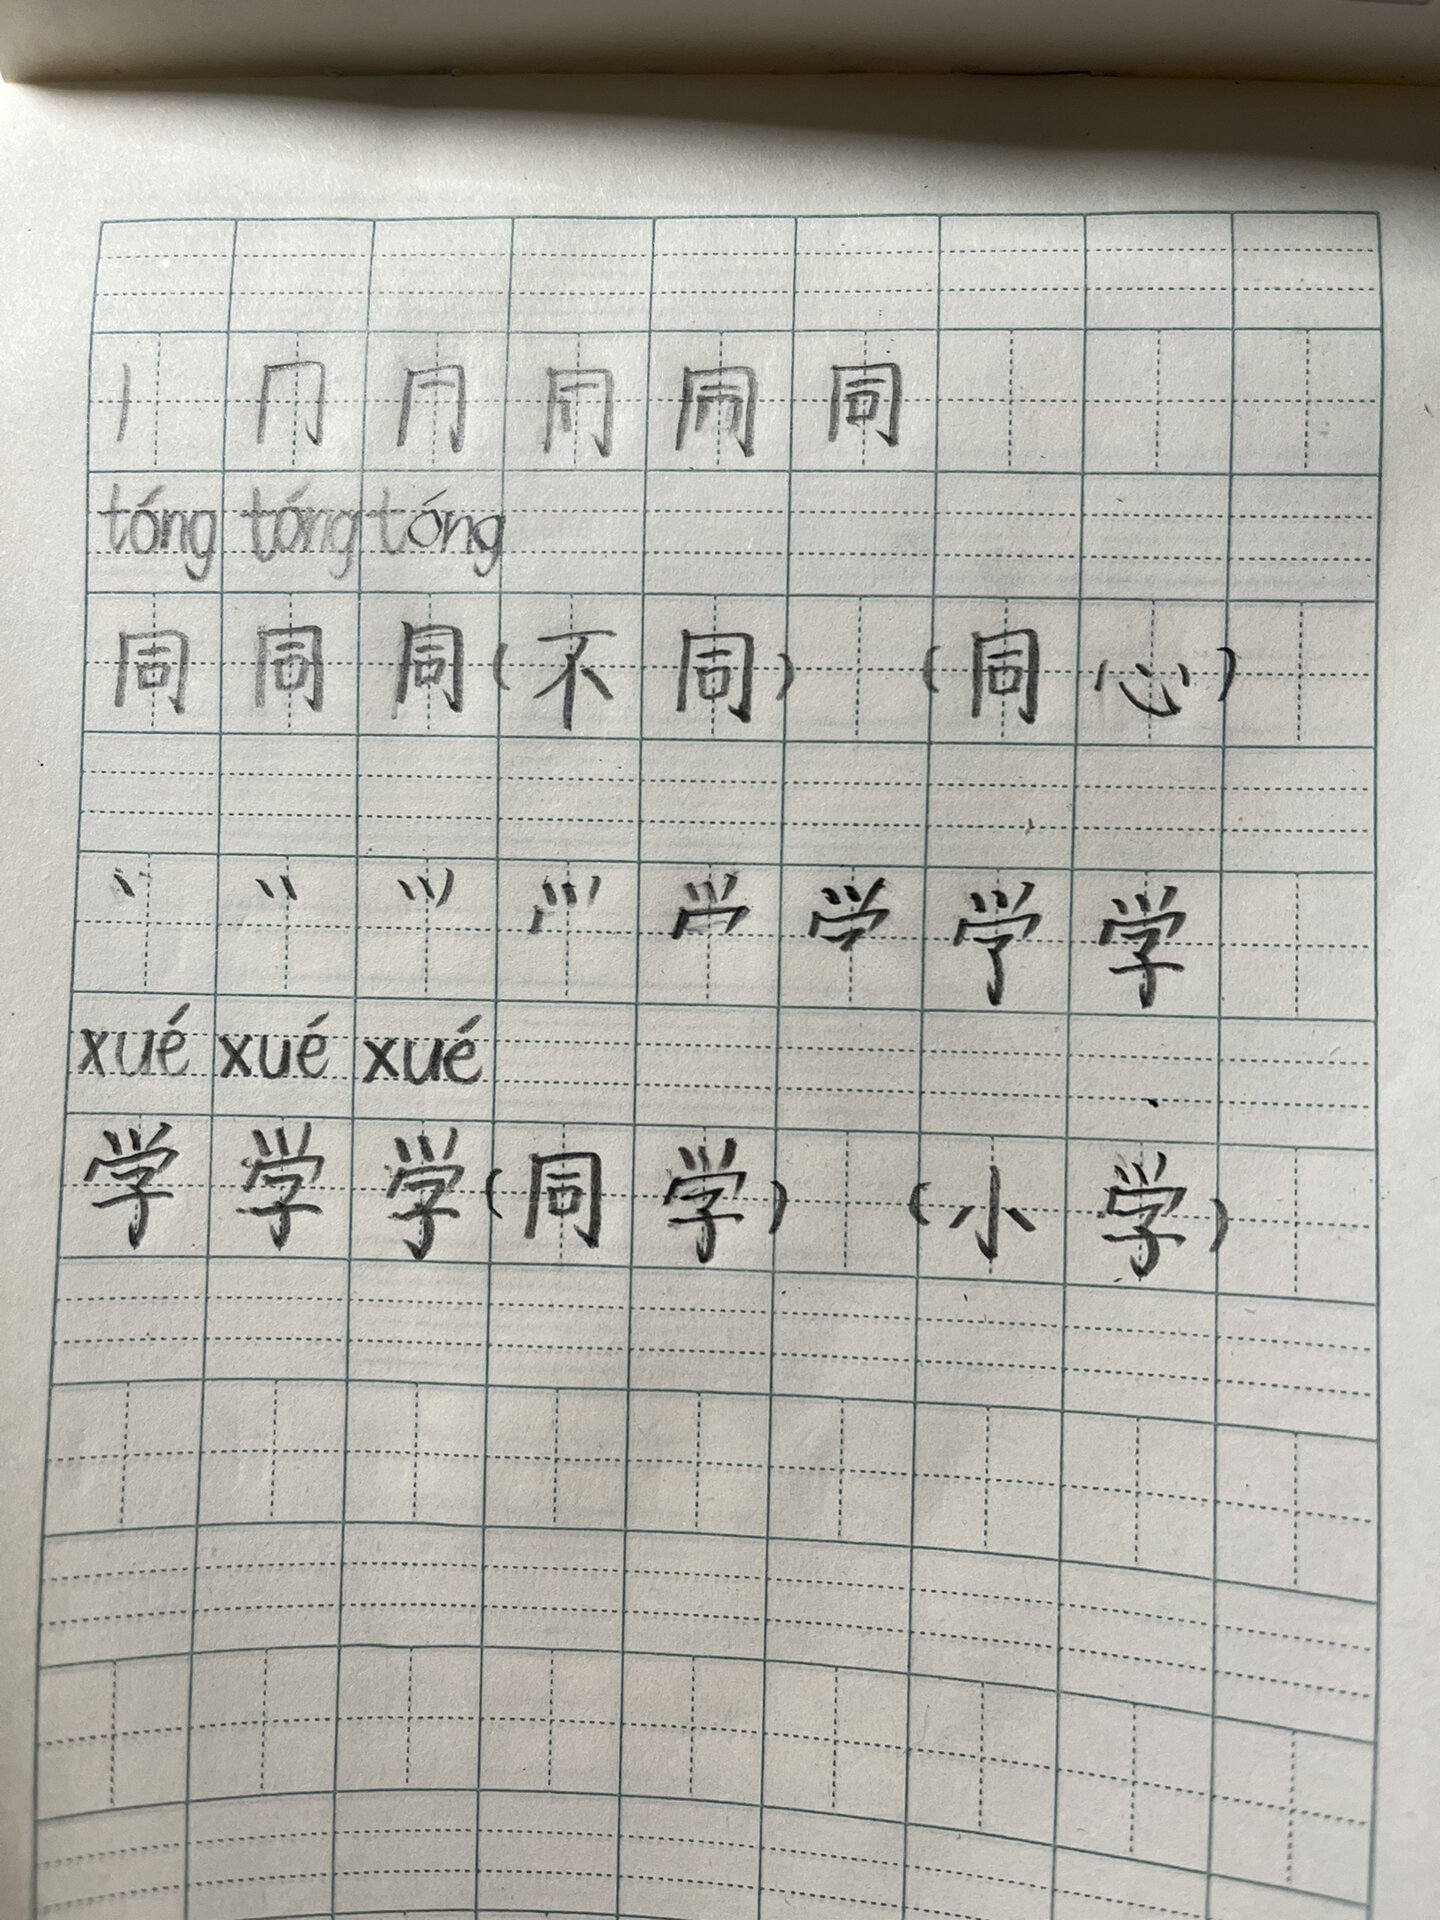 丨 冂 同 同 同 同
tóng tóng tóng
同 同 同 (不 同) (同 心)
学
xué xué xué
学 学 学 (同 学) (小 学)